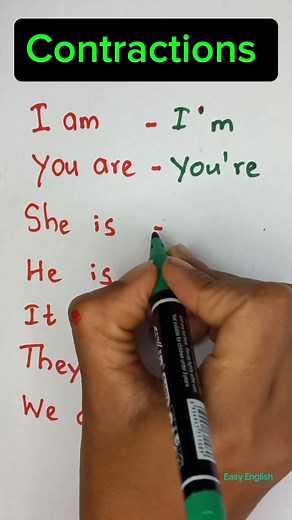 Contractions
I am - I'm
You are - You're
She is -
He is
It
They
We
Easy English